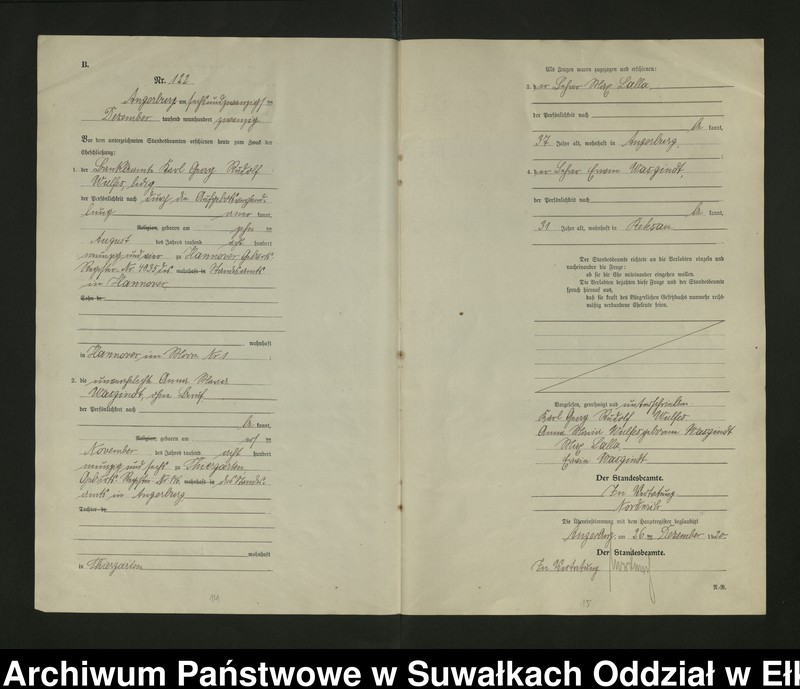 B.
Nr. 122
Angerburg am sechsundzwanzigsten
Dezember tausend neunhundert zwanzig
Vor dem unterzeichneten Standesbeamten erschienen heute zum Zwecke der
Eheschließung:
1. der Bankbeamte Karl Georg Rudolf
Wulfes, ledig
der Persönlichkeit nach durch die Aufgebotsverhand-
lung anerkannt,
Religion, geboren am zehnten
August des Jahres tausend acht hundert
neunzig und vier zu Hannover Geburts-
Register Nr. 4935 des wohnhaft in Standesamts
in Hannover
Sohn de
wohnhaft
in Hannover, im Moore Nr. 1
2. die unverehelichte Anna Maria
Wasgindt, ohne Beruf
der Persönlichkeit nach
be kannt,
Religion, geboren am
November des Jahres tausend acht hundert
neunzig und sechs zu Thiergarten
Geburts-Register Nr. wohnhaft in des Standes-
amts in Angerburg
Tochter de
wohnhaft
in Thiergarten
Als Zeugen waren zugezogen und erschienen:
3. der Lehrer Max Lalla
der Persönlichkeit nach
be kannt,
37 Jahre alt, wohnhaft in Angerburg
4. der Lehrer Erwin Wasgindt,
der Persönlichkeit nach
be kannt,
31 Jahre alt, wohnhaft in
Der Standesbeamte richtete an die Verlobten einzeln und
nacheinander die Frage:
ob sie die Ehe miteinander eingehen wollen.
Die Verlobten bejahten diese Frage und der Standesbeamte
sprach hierauf aus,
daß sie kraft des Bürgerlichen Gesetzbuchs nunmehr recht-
mäßig verbundene Eheleute seien.
Vorgelesen, genehmigt und unterschrieben
Karl Georg Rudolf Wulfes
Anna Maria Wulfes geborene Wasgindt
Max Lalla
Erwin Wasgindt
Der Standesbeamte.
In Vertretung
Die Übereinstimmung mit dem Hauptregister beglaubigt
Angerburg, am 26ten Dezember 1920
Der Standesbeamte.
In Vertretung
N.-B.
14
15
Archiwum Państwowe w Suwałkach Oddział w Ełk